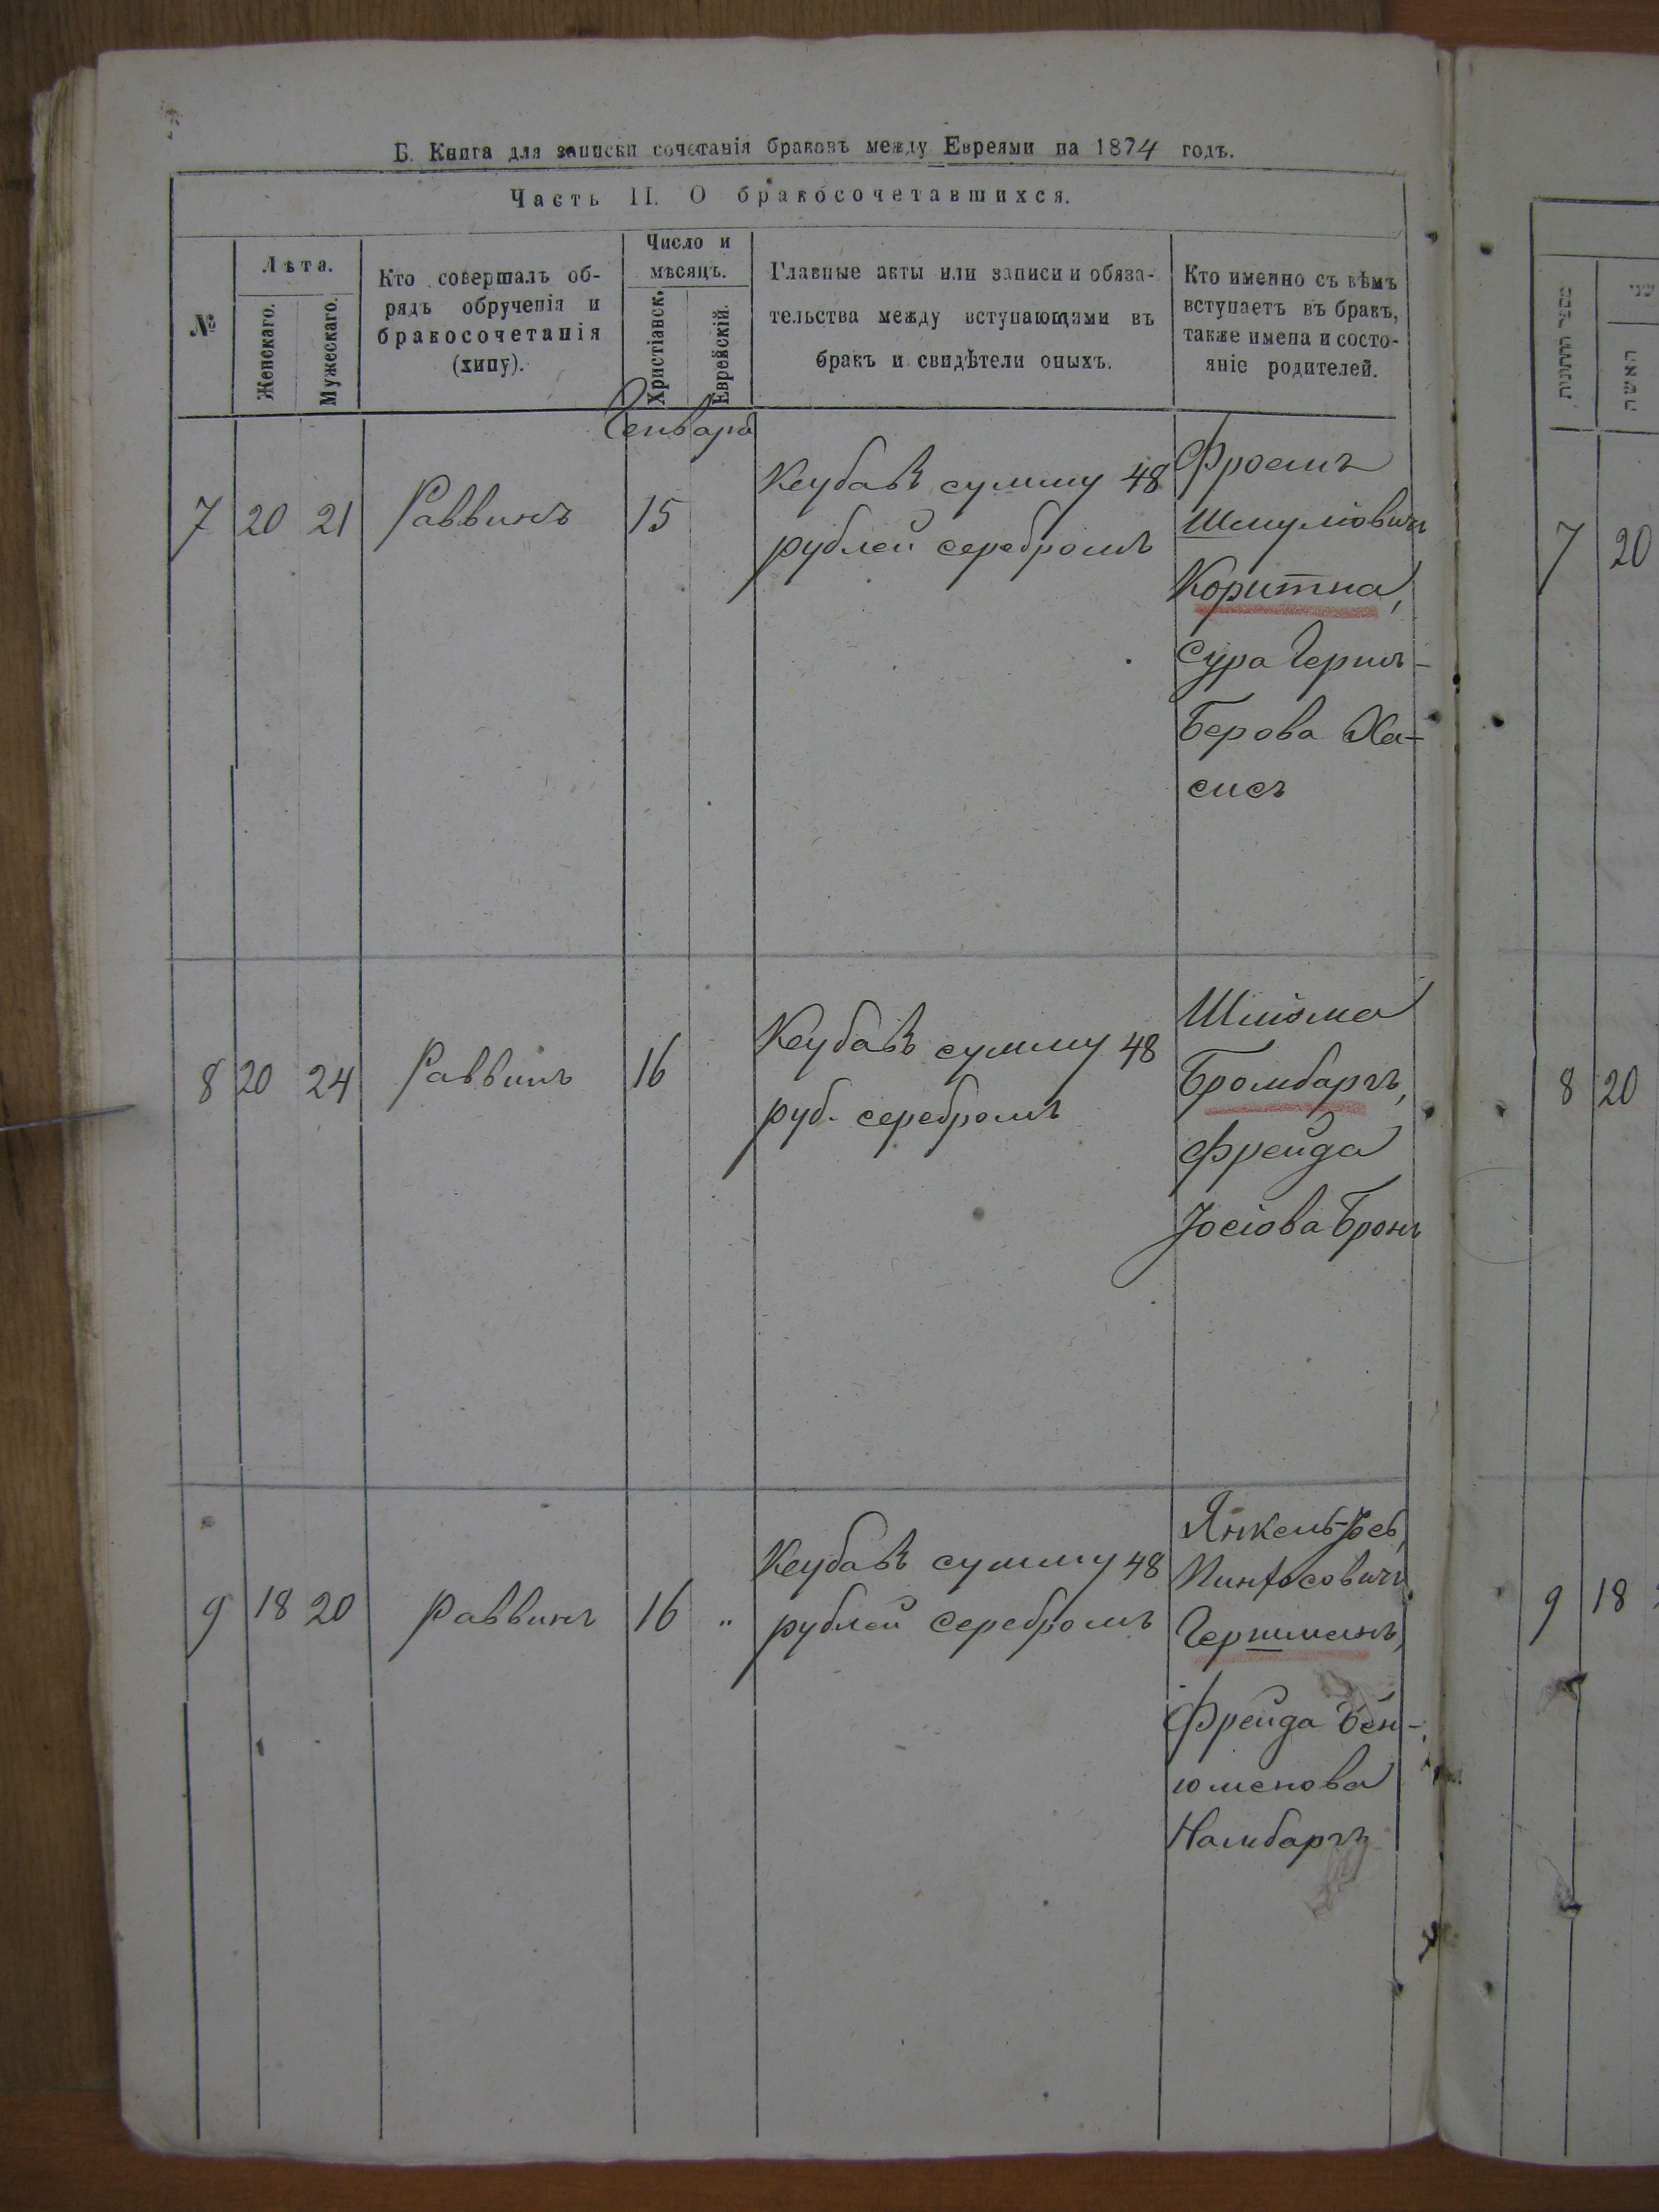 Б. Книга для записки сочетанія браковъ между Евреями на 1874 годъ.
Часть II. О бракосочетавшихся.
№
Лѣта.
Женскаго.
Мужескаго.
Кто совершалъ об-
рядъ обрученія и
бракосочетанія
(хипу).
Число и
мѣсяцъ.
Христіанск.
Еврейскій.
Главные акты или записи и обяза-
тельства между вступающими въ
бракъ и свидѣтели оныхъ.
Кто именно съ кѣмъ
вступаетъ въ бракъ,
также имена и состо-
яніе родителей.
Генваря
7 20 21 Раввинъ 15
Кеубавъ сумму 48
рублей серебромъ
Фроимъ
Шмуліовичъ
Коритна,
Сура Гершъ-
Берова Ха-
сисъ
8 20 24 Раввинъ 16
Кеубавъ сумму 48
руб. серебромъ
Шліома
Бромбаргъ,
Фрейда
Іосіова Бронъ
9 18 20 Раввинъ 16 "
Кеубавъ сумму 48
рублей серебромъ
Янкель-Іос,
Пинхосовичъ
Гершманъ,
Фрейда Бен-
юменова
Намбаргъ
7 20
8 20
9 18
האשה